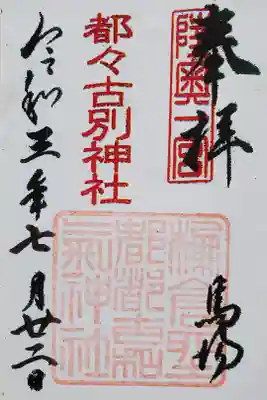 奉拝
陸奥一宮
馬場
都々古別神社
令和三年七月廿二日